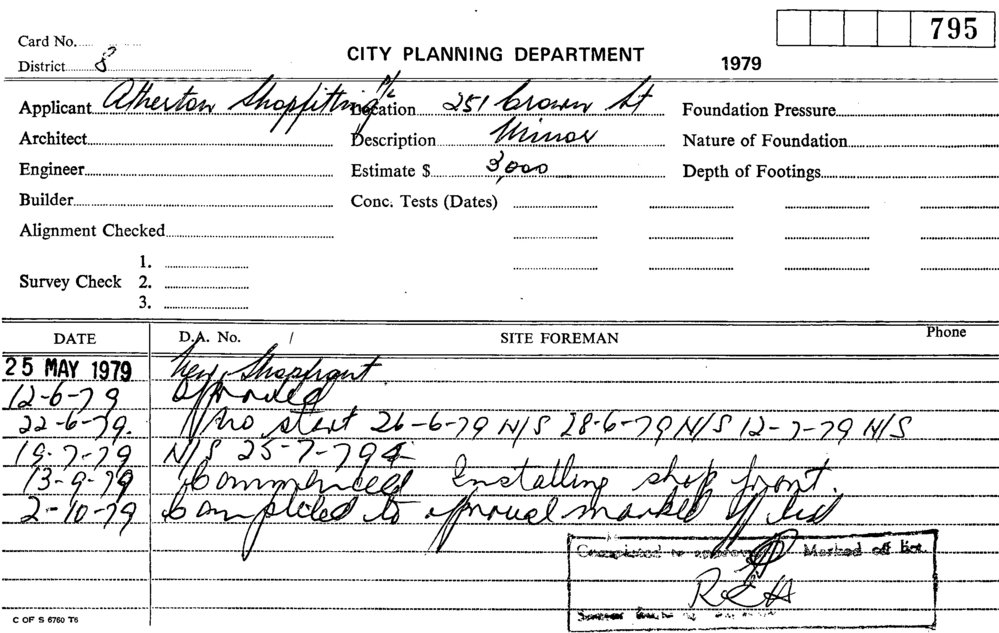 795
Card No.
CITY PLANNING DEPARTMENT
District 8
1979
Applicant Atherton Shopfitting P/L Location 251 Crown St Foundation Pressure
Architect Description Minor Nature of Foundation
Engineer Estimate $ 3,000 Depth of Footings
Builder Conc. Tests (Dates)
Alignment Checked
1.
Survey Check 2.
3.
DATE D.A. No. / SITE FOREMAN Phone
25 MAY 1979 New Shopfront.
12-6-79 Approved
22-6-79. No start 26-6-79 N/S 28-6-79 N/S 12-7-79 N/S
19-7-79 N/S 25-7-79
13-9-79 Commenced Installing shop front.
2-10-79 Completed to approval marked off list
Completed to approval Marked off list
REH
C OF S 6760 T6